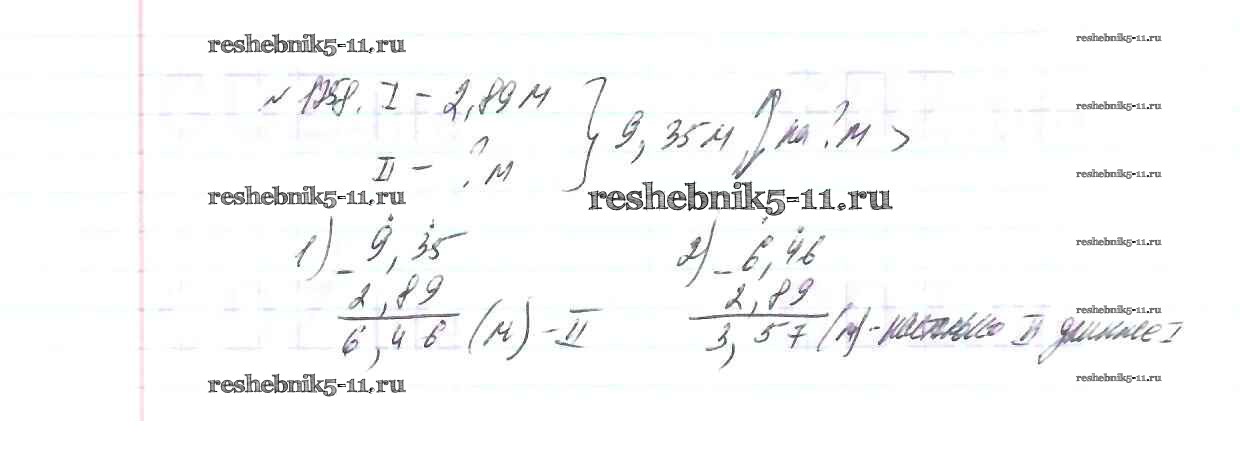 reshebnik5-11.ru
reshebnik5-11.ru
№ 1258. I – 2,89 м
reshebnik5-11.ru
9,35 м на ? м >
II – ? м
reshebnik5-11.ru
reshebnik5-11.ru
reshebnik5-11.ru
1) 9,35
2) 6,46
reshebnik5-11.ru
– 2,89
– 2,89
reshebnik5-11.ru
6,46 (м) – II
3,57 (м) – настолько II длиннее I
reshebnik5-11.ru
reshebnik5-11.ru